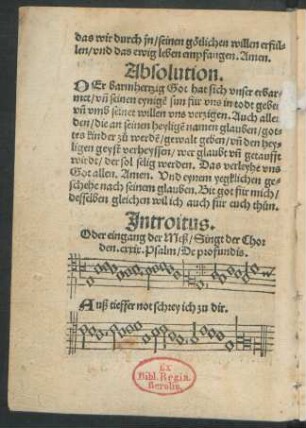 das wir durch jn/seinen götlichen willen erfül-
len/vnd das ewig leben empfangen. Amen.
Absolution.
DEr barmhertzig Got hat sich vnser erbar-
met/vñ seinen eynigẽ sun für vns in tode gebẽ/
vñ vmb seinet willen vns verzigen. Auch allen
den/die an seinen heyligẽ namen glauben/got-
tes kinder zu werdẽ/gewalt geben/vñ den hey-
ligen geyst verheyssen/wer glaubt vñ getaufft
wirdt/der sol selig werden. Das verleyhe vns
Got allen. Amen. Vnd eynem yegklichen ge-
schehe nach seinem glauben. Bit got für mich/
desselben gleichen wil ich auch für euch thün.
Introitus.
Oder eingang der Meß/Singt der Chor
den. cxxix. Psalm/De profundis.
Auß tieffer not schrey ich zu dir.
Ex
Bibl. Regia
Berolin.